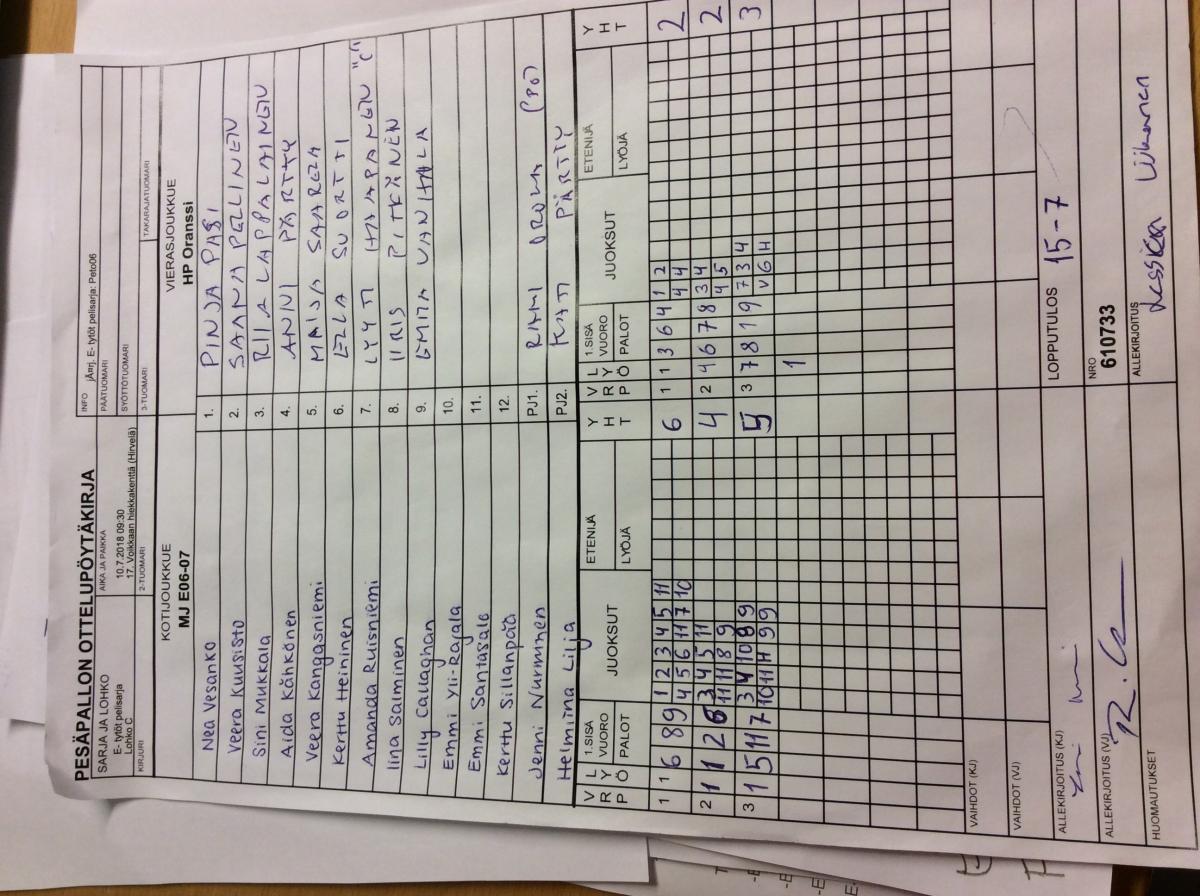 PESÄPALLON OTTELUPÖYTÄKIRJA
SARJA JA LOHKO
E- tytöt pelisarja
Lohko C
AIKA JA PAIKKA
10.7.2018 09:30
17. Voikkaan hiekkakenttä (Hirvelä)
INFO jÄrrj. E- tytöt pelisarja: Peto06
PÄÄTUOMARI
SYÖTTÖTUOMARI
KIRJURI 2-TUOMARI 3-TUOMARI TAKARAJATUOMARI
KOTIJOUKKUE VIERASJOUKKUE
MJ E06-07 HP Oranssi
Nea Vesanko 1. PINJA PASI
Veera Kuusisto 2. SAANA PELLINEN
Sini Mukkala 3. RIIA LAPPALAINEN
Aida Kähkönen 4. ANNI PÄRTTY
Veera Kangasniemi 5. MAIJA SAARELA
Kerttu Heininen 6. ELLA SUORTTI
Amanda Ruisniemi 7. LYYTI HAAPANEN "C"
Iina Salminen 8. IIRIS PITKÄNEN
Lilly Callaghan 9. EMITA VANHALA
Emmi Yli-Rajala 10.
Emmi Santasalo 11.
Kerttu Sillanpää 12.
Jenni Nurminen PJ1. RAMI (PO)
Helmiina Lilja PJ2. KATI PÄRTTY
VRP LYÖ 1.SISÄ VUORO PALOT JUOKSUT ETENIJÄ LYÖJÄ YHT VRP LYÖ 1.SISÄ VUORO PALOT JUOKSUT ETENIJÄ LYÖJÄ YHT
1 1 6 8 9 1 2 3 4 5 11 6 1 1 3 6 4 1 2 2
4 5 6 11 7 10 4 4
2 1 1 2 6 3 4 5 11 4 2 4 6 7 8 3 4 2
11 11 8 9 4 5
3 1 5 11 7 3 4 10 8 9 5 3 7 8 1 9 7 3 4 3
10 11 H 9 9 V 6 H
1
VAIHDOT (KJ)
VAIHDOT (VJ)
ALLEKIRJOITUS (KJ) LOPPUTULOS 15-7
ALLEKIRJOITUS (VJ) NRO 610733
HUOMAUTUKSET ALLEKIRJOITUS Jessica Liikanen